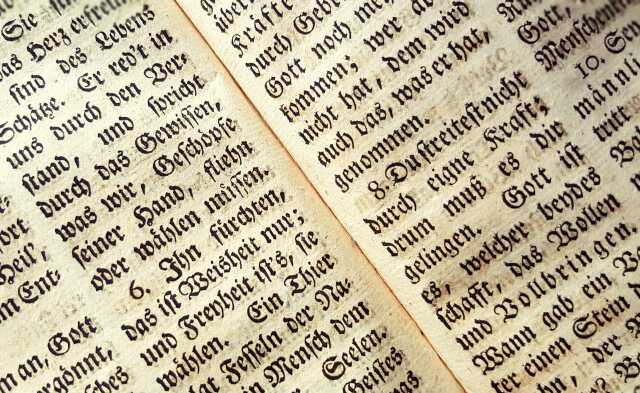 Sie
das Herz erfreuen
sind des Lebens
Schätze. Er red't in
uns durch den Ver-
stand, und spricht
durch das Gewissen,
was wir, Geschöpfe
seiner Hand, fliehn
oder wählen müssen.
6. Ihn fürchten,
das ist Weisheit nur;
und Freyheit ists, sie
wählen. Ein Thier
Fesseln der Na-
Mensch dem
Seelen.
Geistes
ort
Heil,
m Ent-
man, Gott
ergönnt,
Kräfte
durch Gebet
Gott noch meh
kommen; wer a
nicht hat, dem wird
auch das, was er hat,
genommen.
8. Du streitest nicht
durch eigne Kraft;
drum muß es dir
gelingen. Gott ist
es, welcher beydes
schafft, das Wollen
und Vollbringen.
Wann gab ein Va
ter einen Stein
Gott,
Menschen
10. Se
männli
tritt